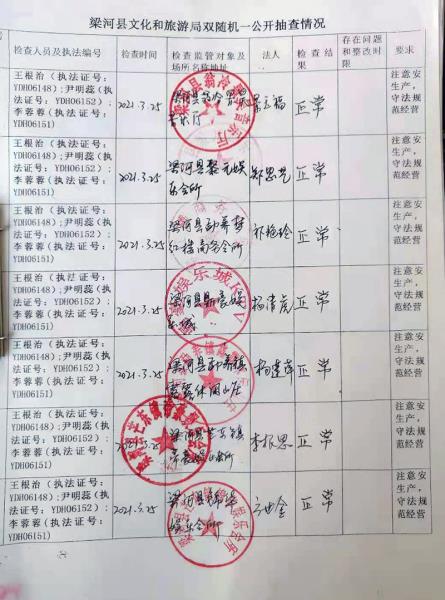 梁河县文化和旅游局双随机一公开抽查情况
检查人员及执法编号 检查时间 检查监管对象及场所名称地址 法人 检查结果 存在问题和整改时限 要求
王根治（执法证号：
YDH06148）;尹明蕊（执
法证号：YDH06152）;
李蓉蓉（执法证号：
YDH06151)
2021.3.25
梁河县
正常
注意安
生产，
守法规
范经营
王根治（执法证号：
YDH06148）;尹明蕊（执
法证号：YDH06152）;
李蓉蓉（执法证号：
YDH06151)
2021.3.25
梁河县
乐会所
正常
注意安
生产，
守法规
范经营
王根治（执法证号：
YDH06148）;尹明蕊（执
法证号：YDH06152）;
李蓉蓉（执法证号：
YDH06151)
2021.3.25
梁河县勐养梦
红楼商务会所
正常
注意安
生产，
守法规
范经营
王根治（执法证号：
YDH06148）;尹明蕊（执
法证号：YDH06152）;
李蓉蓉（执法证号：
YDH06151)
2021.3.25
梁河县
娱乐城
正常
注意安
生产，
守法规
范经营
王根治（执法证号：
YDH06148）;尹明蕊（执
法证号：YDH06152）;
李蓉蓉（执法证号：
YDH06151)
2021.3.25
梁河县勐养镇
休闲山庄
正常
注意安
生产，
守法规
范经营
王根治（执法证号：
YDH06148）;尹明蕊（执
法证号：YDH06152）;
李蓉蓉（执法证号：
YDH06151)
2021.3.25
梁河县芒东镇
会所
正常
注意安
生产，
守法规
范经营
王根治（执法证号：
YDH06148）;尹明蕊（执
法证号：YDH06152）;
李蓉蓉（执法证号：
YDH06151)
2021.3.25
梁河县
娱乐会所
正常
注意安
生产，
守法规
范经营